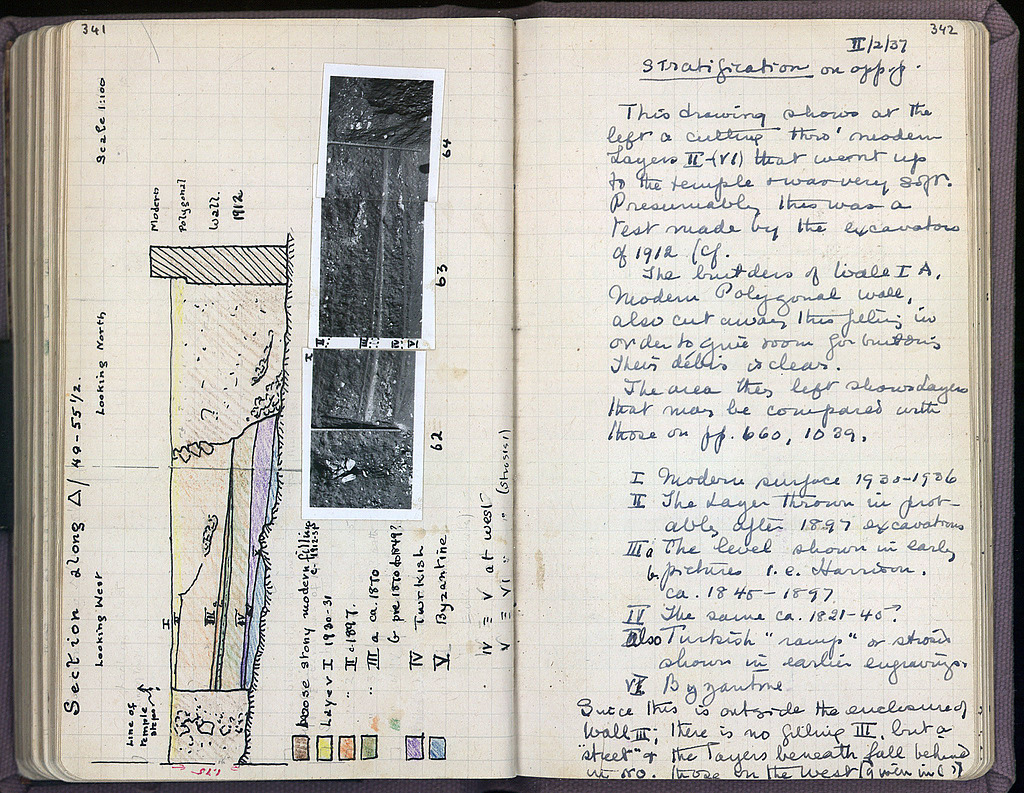 341
Section along Δ/ 49-55½.
Scale 1:100
Looking West
Looking North
Line of
temple
steps
Modern
Polygonal
Wall.
1912
I
II
III
IV
V
?
1.75
Loose stony modern filling
Layer I 1930-31
II c. 1897.
III a ca. 1870
b pre 1870 to 1849?
IV Turkish
V Byzantine
IV ≡ V at west
V ≡ VI " " (Strosis!)
62
63
64
342
II/2/37
Stratification on opp. p.
This drawing shows at the
left a cutting thro' modern
Layers II-(VI) that went up
to the temple & was very soft.
Presumably this was a
test made by the excavators
of 1912 (cf.
The builders of Wall I A,
Modern Polygonal wall,
also cut away this filling in
order to give room for building
Their débris is clear.
The area then left shows Layers
that may be compared with
those on pp. 660, 1039.
I Modern surface 1930-1936
II The Layer thrown in prob-
ably after 1897 excavations
III a The level shown in early
b pictures i.e. Harrison.
ca. 1845-1897
IV The same ca. 1821-40?
Also Turkish "ramp" or strosis
shown in earlier engravings.
VI Byzantine
Since this is outside the enclosure of
Wall III; there is no filling III, but a
"street" & the layers beneath fall behind
in no. those on the West (given in ( ))